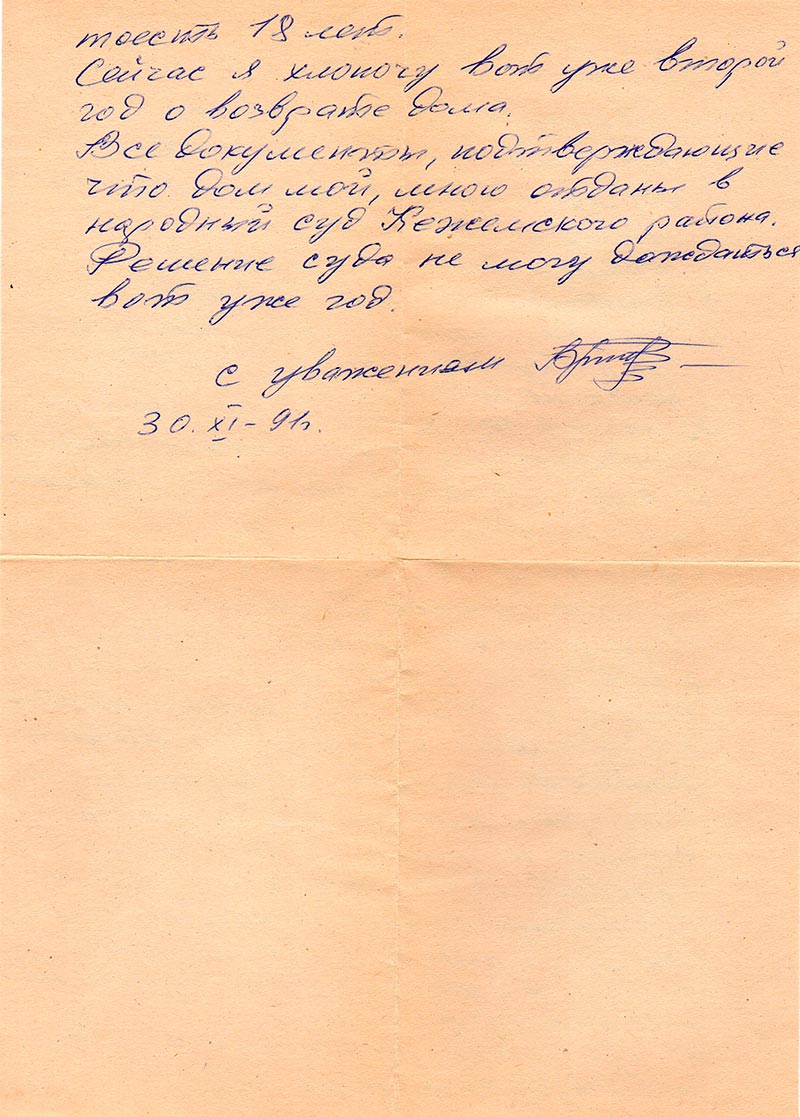 тоесть 18 лет.
Сейчас я хлопочу вот уже второй
год о возврате дома.
Все документы, подтверждающие
что дом мой, мною отданы в
народный суд Кежемского района.
Решение суда не могу дождаться
вот уже год.
с уважением
30. XI - 91г.